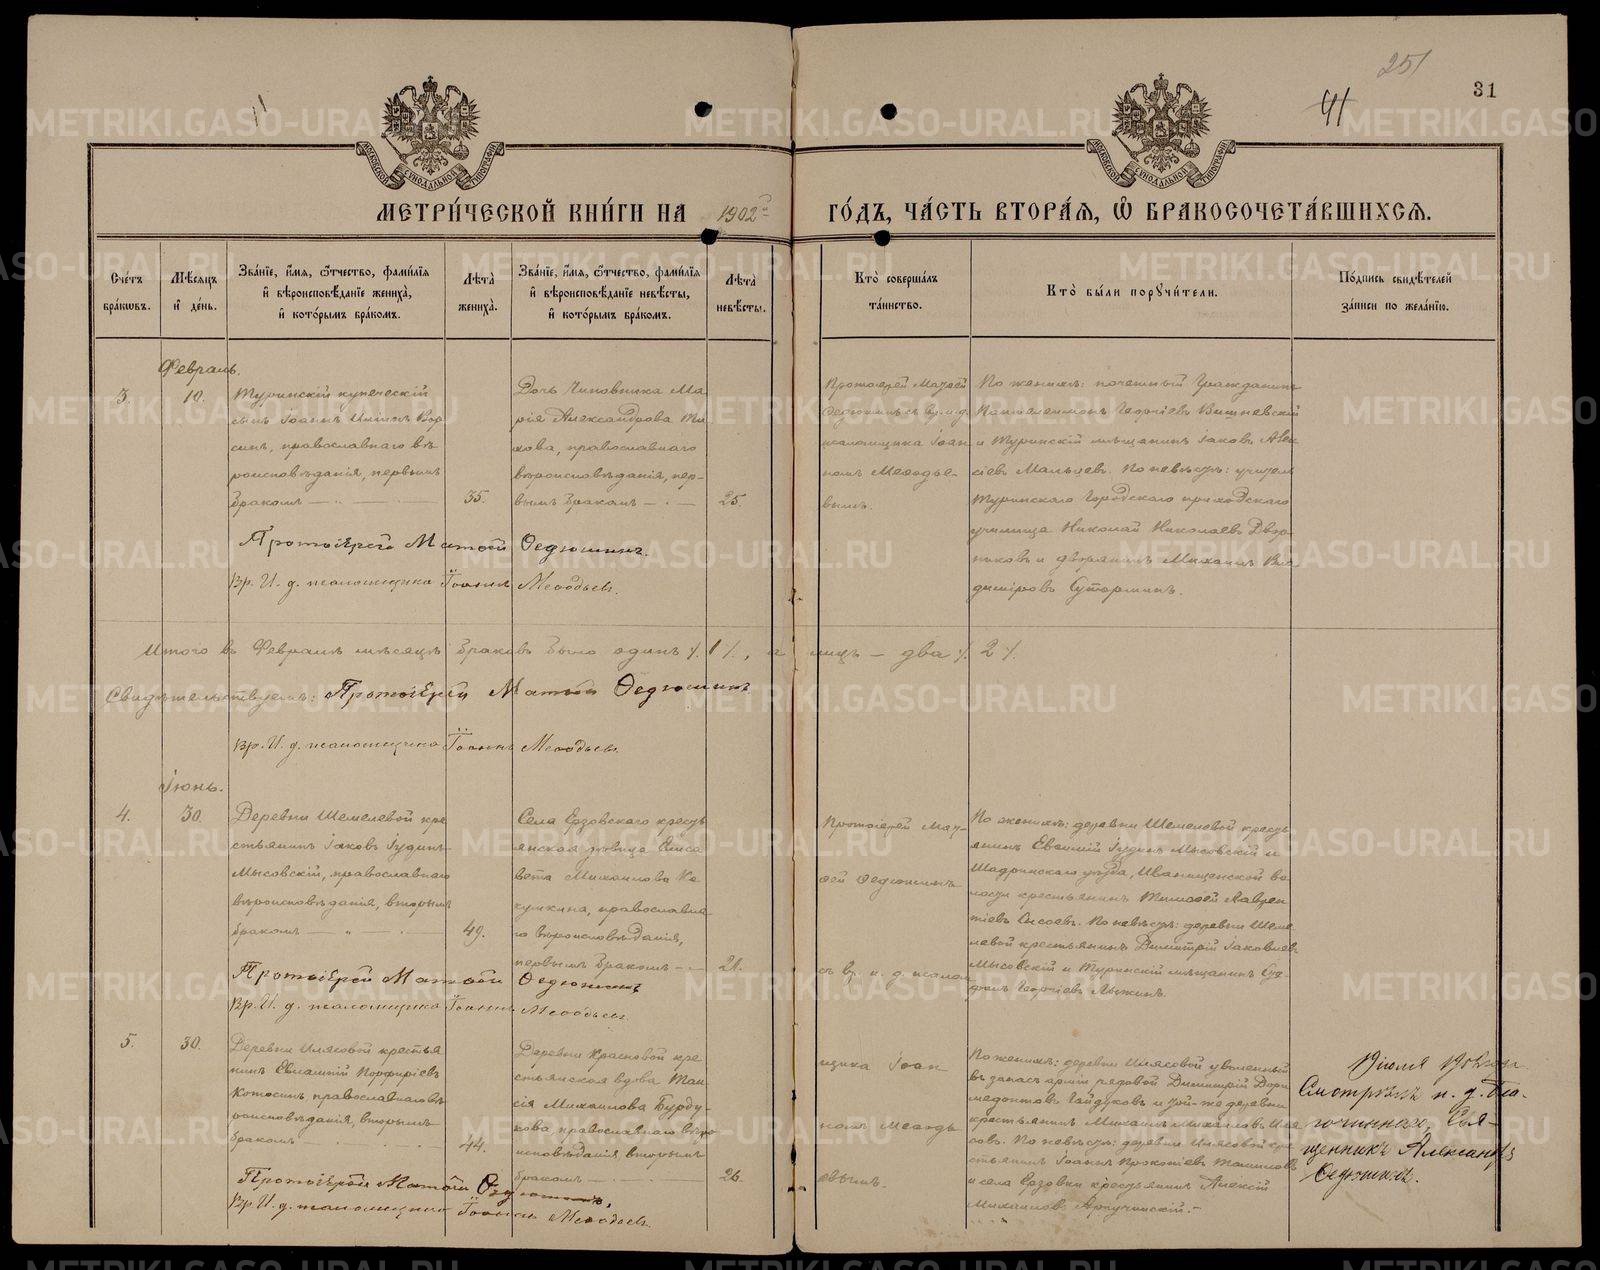 251
41
31
МОСКОВСКОЙ СѴНОДАЛЬНОЙ ТИПОГРАФІИ
МОСКОВСКОЙ СѴНОДАЛЬНОЙ ТИПОГРАФІИ
МЕТРИ́ЧЕСКОЙ КНИ́ГИ НА 1902й ГО́ДЪ, ЧА́СТЬ ВТОРА́Я, Ѡ҆ БРАКОСОЧЕТА́ВШИХСЯ.
Сче́тъ бра́кѡвъ.
Мѣ́сяцъ и҆ де́нь.
Зва́нїе, и҆́мя, ѻ҆́тчество, фами́лїя и҆ вѣроисповѣ́данїе жениха̀, и҆ кото́рымъ бра́комъ.
Лѣ́та жениха̀.
Зва́нїе, и҆́мя, ѻ҆́тчество, фами́лїя и҆ вѣроисповѣ́данїе невѣ́сты, и҆ кото́рымъ бра́комъ.
Лѣ́та невѣ́сты.
Кто̀ соверша́лъ та́инство.
Кто̀ бы́ли порꙋчи́тели.
По́дпись свидѣ́телей за́писи по жела́нїю.
Февраль.
3.
10.
Туринскій купеческій
сынъ Іоаннъ
православнаго вѣ
роисповѣданія, первымъ
бракомъ
35.
Дочь Чиновника Ма
рія Александрова
кова, православнаго
вѣроисповѣданія, пер-
вымъ бракомъ
25.
Протоіерей Матѳей
Ѳедюшинъ съ вр. и. д.
псаломщика Іоан
номъ Меѳодье-
вымъ.
По женихѣ: почетный Гражданинъ
Пантелеимонъ Георгіевъ Вишневскій
и Туринскій мѣщанинъ Іаковъ Алек
сіевъ Мальцевъ. По невѣстѣ: учитель
Туринскаго Городскаго приходскаго
училища Николай Николаевъ Двор
никовъ и дворянинъ Михаилъ Вла
диміровъ
Протоіерей Матѳей Ѳедюшинъ.
Вр. И. д. псаломщика Іоаннъ Меѳодьевъ.
Итого въ Февралѣ мѣсяцѣ браковъ было одинъ /. 1 /., а лицъ – два /. 2 /.
Свидѣтельствуемъ: Протоіерей Матѳей Ѳедюшинъ
Вр. И. д. псаломщика Іоаннъ Меѳодьевъ.
Іюнь.
4.
30.
Деревни Шемелевой кре
стьянинъ Іаковъ Іудинъ
Мысовскій, православнаго
вѣроисповѣданія, вторымъ
бракомъ
49.
Села Ерзовскаго кресть
янская дѣвица Елиса
вета Михаилова Ка
чулкина, православна
го вѣроисповѣданія,
первымъ бракомъ
21.
Протоіерей Мат-
ѳей Ѳедюшинъ
съ вр. и. д. псалом
По женихѣ: деревни Шемелевой кресть
янинъ Евѳимій Іудинъ Мысовскій и
Шадринскаго уѣзда, Иванищенской во
лости крестьянинъ Тимоѳей Лаврен
тіевъ Сысоевъ. По невѣстѣ: деревни Шеме
левой крестьянинъ Димитрій Іаковлевъ
Мысовскій и Туринскій мѣщанинъ
Георгіевъ Лыжинъ.
Протоіерей Матѳей Ѳедюшинъ
Вр. И. д. псаломщика Іоаннъ Меѳодьевъ.
5.
30.
Деревни Илясовой крестья
нинъ Евлампій Порфиріевъ
Котосинъ православнаго вѣ
роисповѣданія, вторымъ
бракомъ
44.
Деревни Красновой кре
стьянская вдова Таи
сія Михаилова Бурду-
кова православнаго вѣро
исповѣданія, вторымъ
бракомъ
26.
щика Іоан
номъ Меѳодь
евымъ.
По женихѣ: деревни Илясовой уволенный
въ запасъ арміи рядовой Димитрій Дори
медонтовъ Гайдуковъ и той-же деревни
крестьянинъ Михаилъ Михаиловъ Иля
совъ. По невѣстѣ: деревни Илясовой кре
стьянинъ Іоаннъ Прокопіевъ
и села Ерзовки крестьянинъ Алексій
Михаиловъ
Іюля
Смотрѣлъ и. д. Бла-
гочиннаго, Свя-
щенникъ Александръ
Ѳедюшинъ.
Протоіерей Матѳей Ѳедюшинъ,
Вр. И. д. псаломщика Іоаннъ Меѳодьевъ.
METRIKI.GASO-URAL.RU